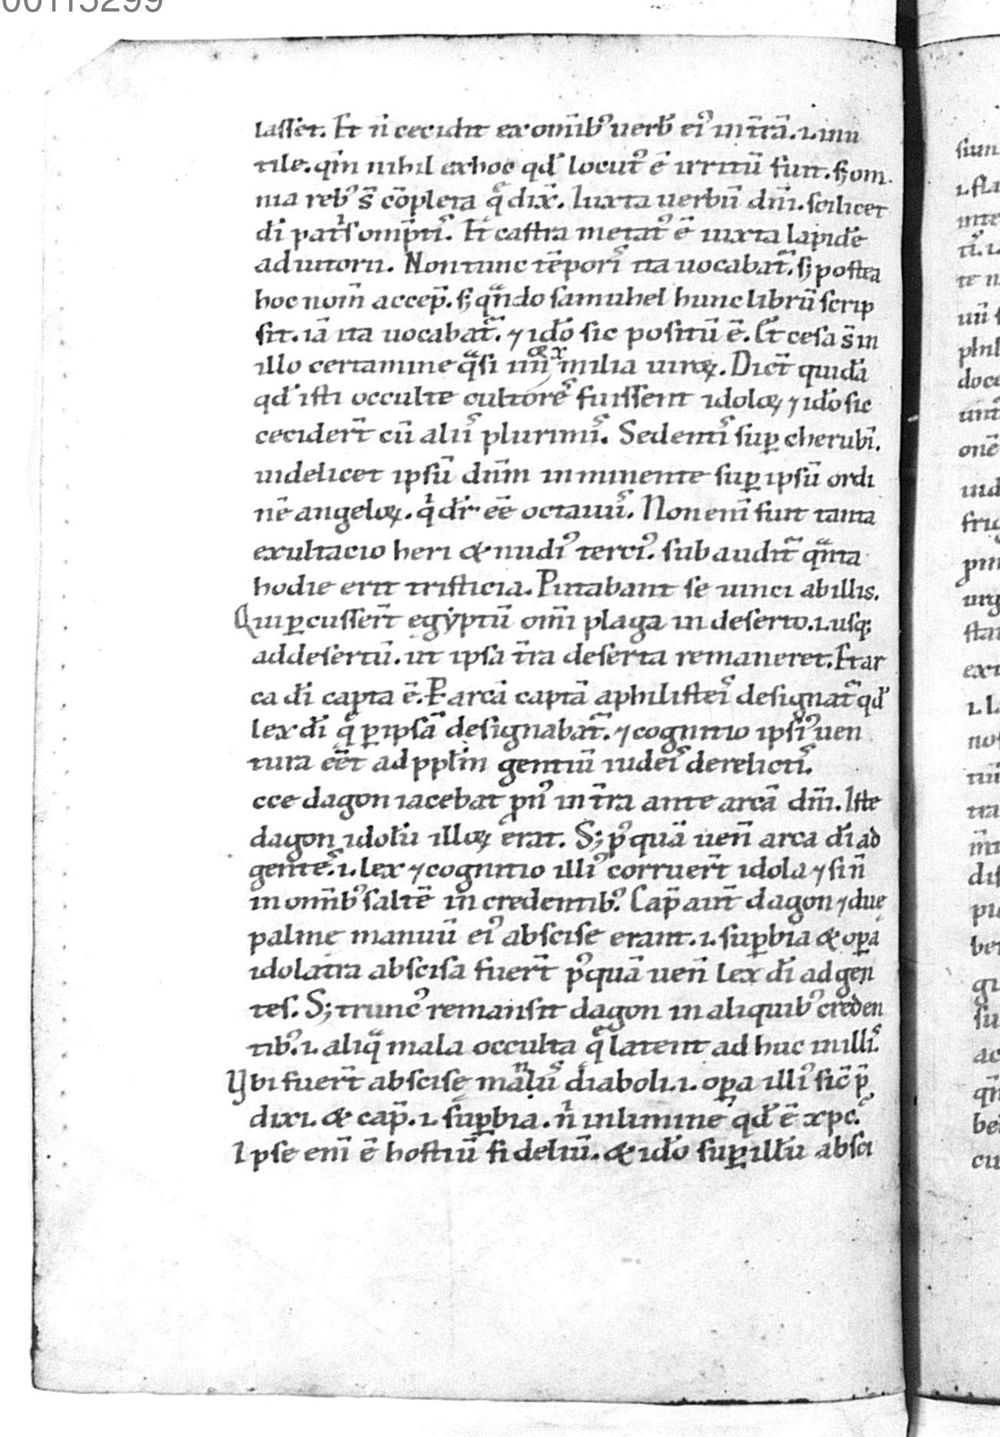 00115299
lasset. Et n̄ cecidit ex om̄ibꝰ uerb̄ eiꝰ in t̄rā .i. inu
tile. qm̄ nihil ex hoc qd̄ locutꝰ ē irritū fuit. s; om
nia rebꝰ s̄ cōpleta q̄ dix̄. Iuxta uerbū dn̄i. scilicet
dī pat͛s omp̄tis. Et castra metatꝰ ē iuxta lapidē
adiutorii. Non tunc tēporis ita uocabat᷑. s; postea
hoc nom̄ accep̄. s; qn̄do samuhel hunc librū scrip
sit. iā ita uocabat᷑. ⁊ idō sic positū ē. Et cesa s̄ in
illo certamine qͣsi iiii ex milia uiroꝝ. Dict̄ quidā
qd̄ isti occulte cultores fuissent idoloꝝ ⁊ idō sic
cecider̄t cū aliis plurimis. Sedentis suꝑ cherubī.
uidelicet ipsū dn̄m inminente suꝑ ipsū ordi
nē angeloꝝ. qͥ dr̄ eē octauus. Non enī fuit tanta
exultacio heri & nudiꝰ terciꝰ. subaudit᷑ qͣnta
hodie erit tristicia. Putabant se uinci ab illis.
Qui ꝑcusser̄t egẏptū om̄i plaga in deserto .i. usq;
ad desertū. ut ipsa t̄ra deserta remaneret. Et ar
ca dī capta ē. P arcā captā a philisteis designat᷑ qd̄
lex dī q̄ ꝑ ipsā designabat᷑. ⁊ cognitio ipsiꝰ uen
tura eēt ad pplm̄ gentiū iudeis derelictis.
cce dagon iacebat pnꝰ in t̄ra ante arcā dn̄i. Iste
dagon idolū illoꝝ erat. S; pꝰquā uen̄ arca dī ad
gentes .i. lex ⁊ cognitio illiꝰ corruer̄t idola ⁊ si n̄
in om̄ibꝰ saltē in credentibꝰ. Cap̄ aut̄ dagon ⁊ due
palme manuū eiꝰ abscise erant .i. suꝑbia & oꝑa
idolatria abscisa fuer̄t pꝰquā uen̄ lex dī ad gen
tes. S; truncꝰ remansit dagon in aliquibꝰ creden
tibꝰ .i. aliqͣ mala occulta q̄ latent adhuc in illis.
Ubi fuer̄t abscisę manꝰ diaboli .i. oꝑa illiꝰ sic̄ p̄
dixi. & cap̄ .i. suꝑbia. n̄ in limine qd̄ ē xpc.
Ipse enī ē hostiū fideliū. & idō suꝑ illū absci